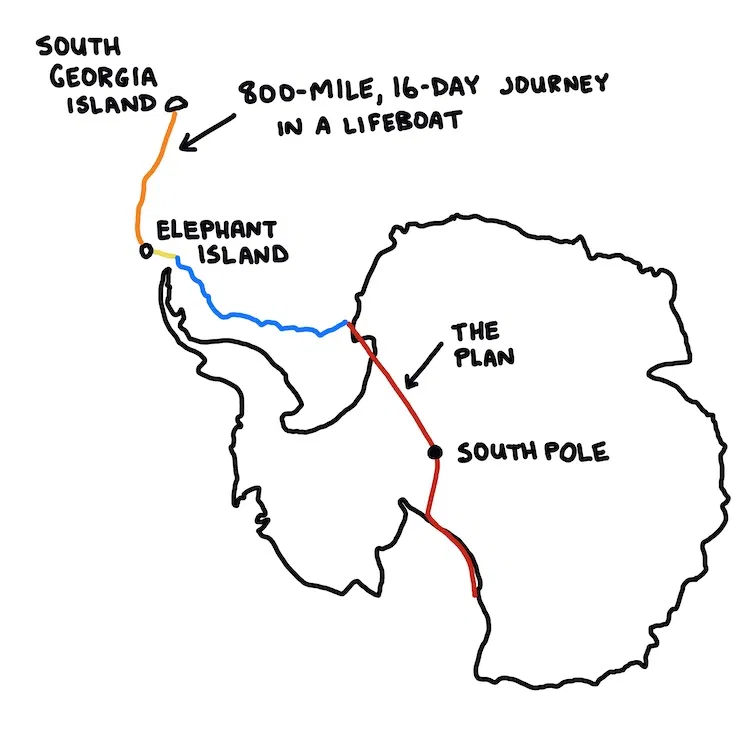 SOUTH
GEORGIA
ISLAND
800-MILE, 16-DAY JOURNEY
IN A LIFEBOAT
ELEPHANT
ISLAND
THE
PLAN
SOUTH POLE